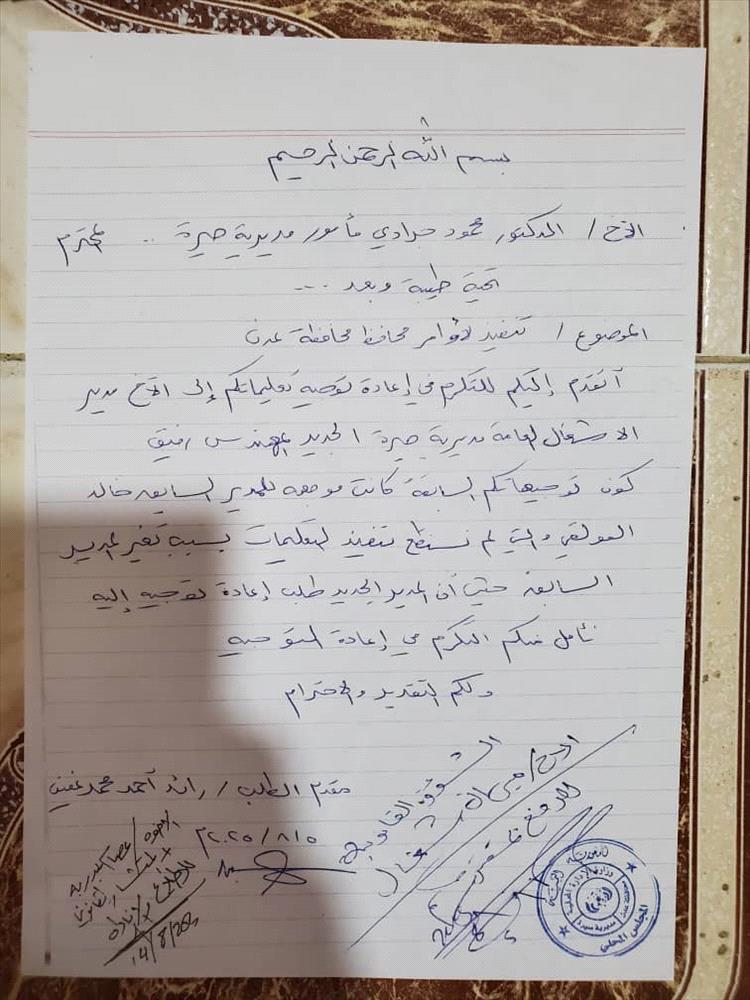 بسم الله الرحمن الرحيم
الأخ / الدكتور محمود جرادي مأمور مديرية صيرة .. المحترم
تحية طيبة وبعد ....
الموضوع / تنفيذ لأوامر محافظ محافظة عدن
أتقدم إليكم للتكرم في إعادة توجيه تعليماتكم إلى الأخ مدير
الاشغال العامة مديرية صيرة الجديد المهندس رفيق
كون توجيهاتكم السابقة كانت موجهه للمدير السابق خالد
والتي لم نستطع تنفيذ التعليمات بسبب تغير المدير
السابق حيث أن المدير الجديد طلب إعادة توجيه إليه
نأمل منكم التكرم في إعادة التوجيه
ولكم التقدير والاحترام
مقدم الطلب / رائد أحمد محمد
٢٠٢٥/٨/٥
الأخ / الأشغال
الشؤون القانونية
للاطلاع والإفادة
14/8/202
وزارة الإدارة المحلية
مديرية صيرة
المجلس المحلي